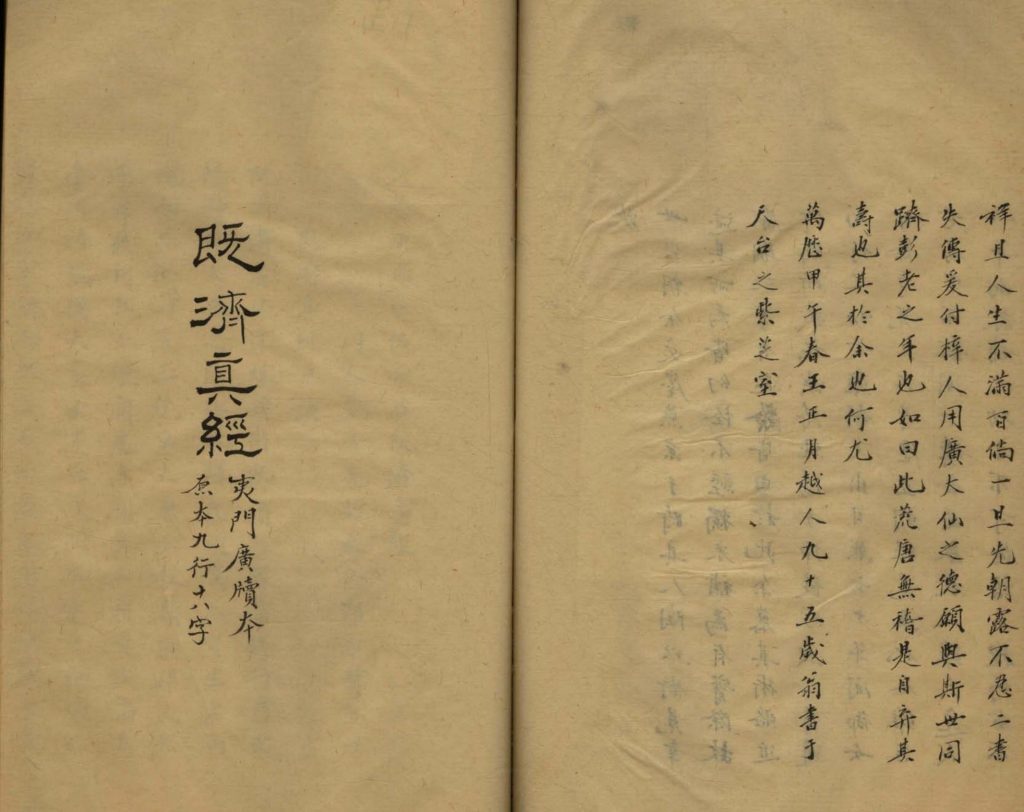 祥且人生不滿百倘一旦先朝露不忍二書
失傳爰付梓人用廣大仙之德願與斯世同
躋彭老之年也如曰此荒唐無稽是自弃其
壽也其於余也何尤
萬曆甲午春王正月越人九十五歲翁書于
天台之紫芝室
既濟真經
夷門廣牘本
原本九行十八字